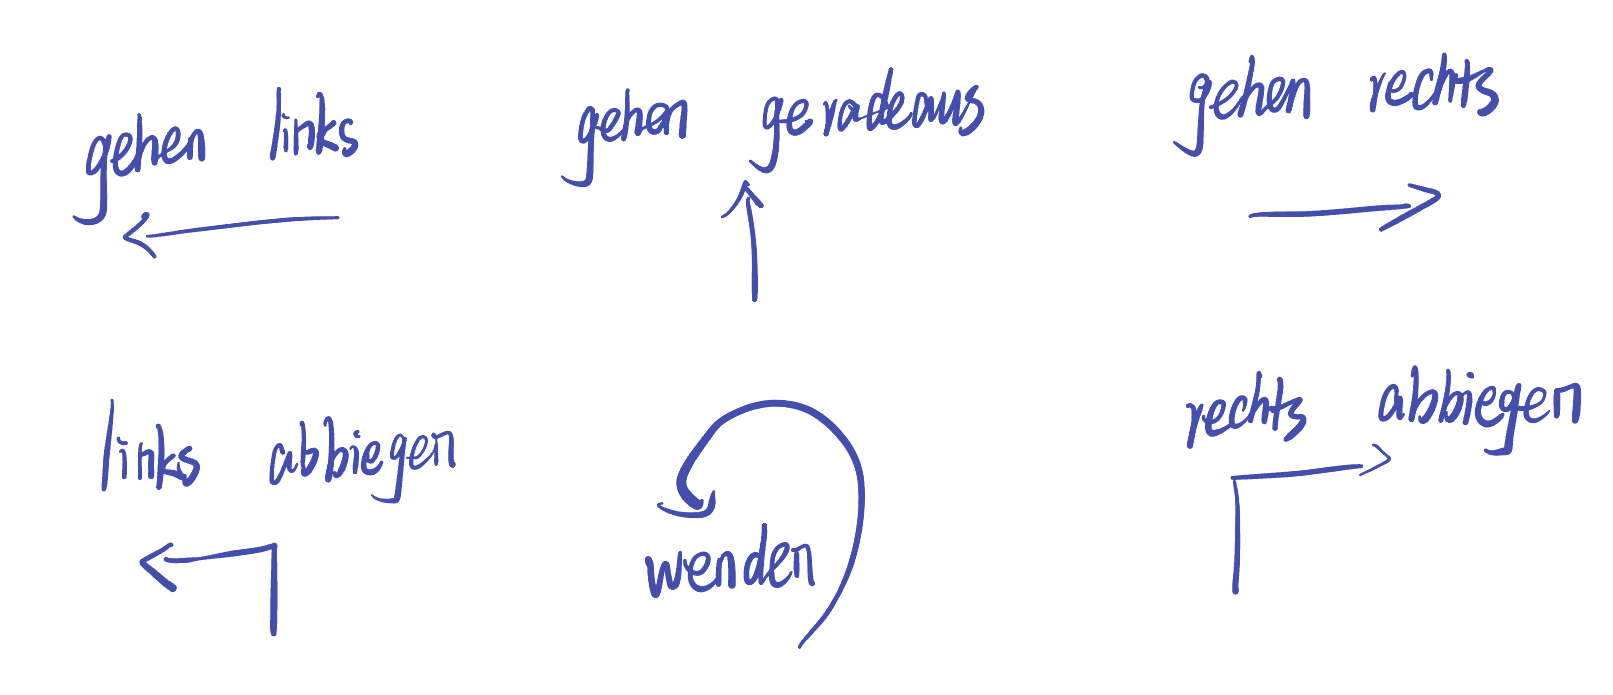 gehen links
gehen geradeaus
gehen rechts
links abbiegen
wenden
rechts abbiegen